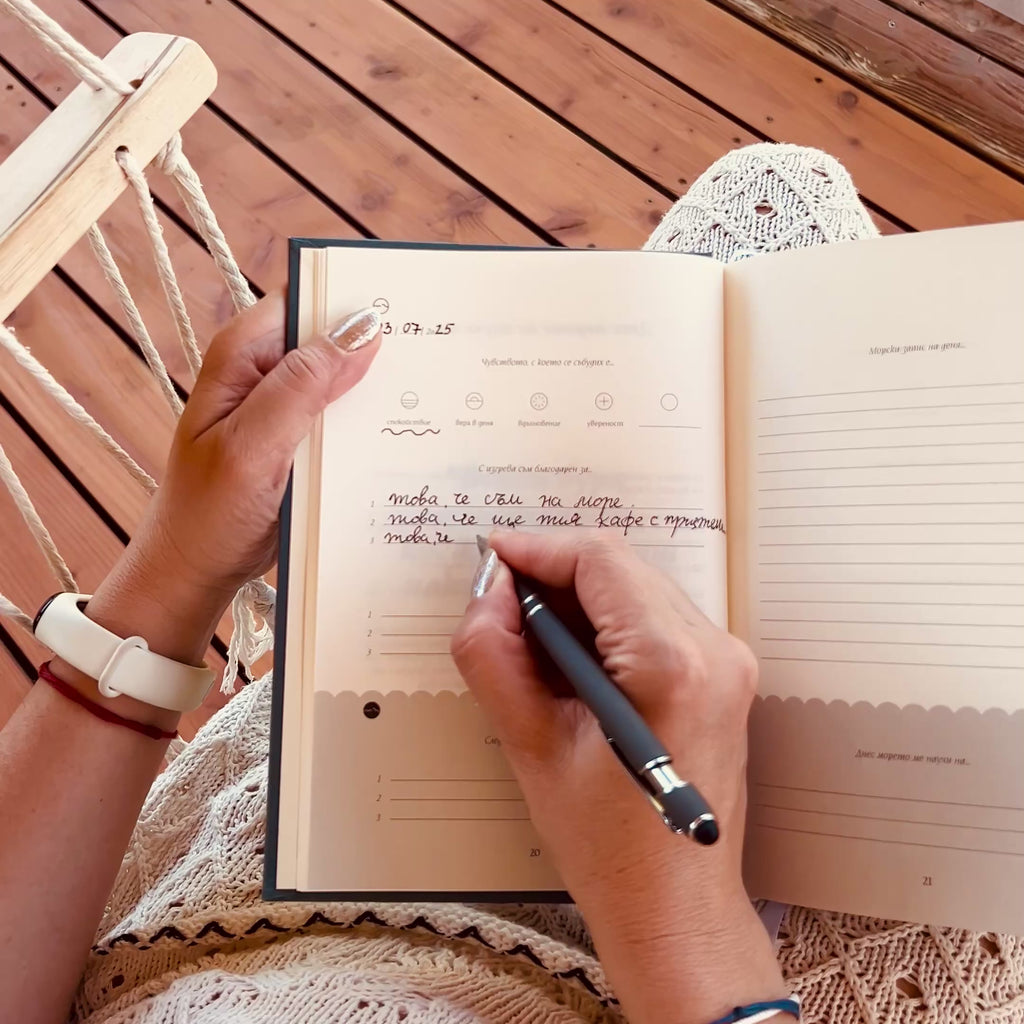 3 07 25
Чувството, с което се събудих е...
спокойствие вяра в деня вдъхновение увереност
С изгрева съм благодарен за...
1 това, че съм на море.
2 това, че ще пия кафе с приятели
3 това, че
1
2
3
1
2
3
20
Морски запис на деня...
Днес морето ме научи на...
21